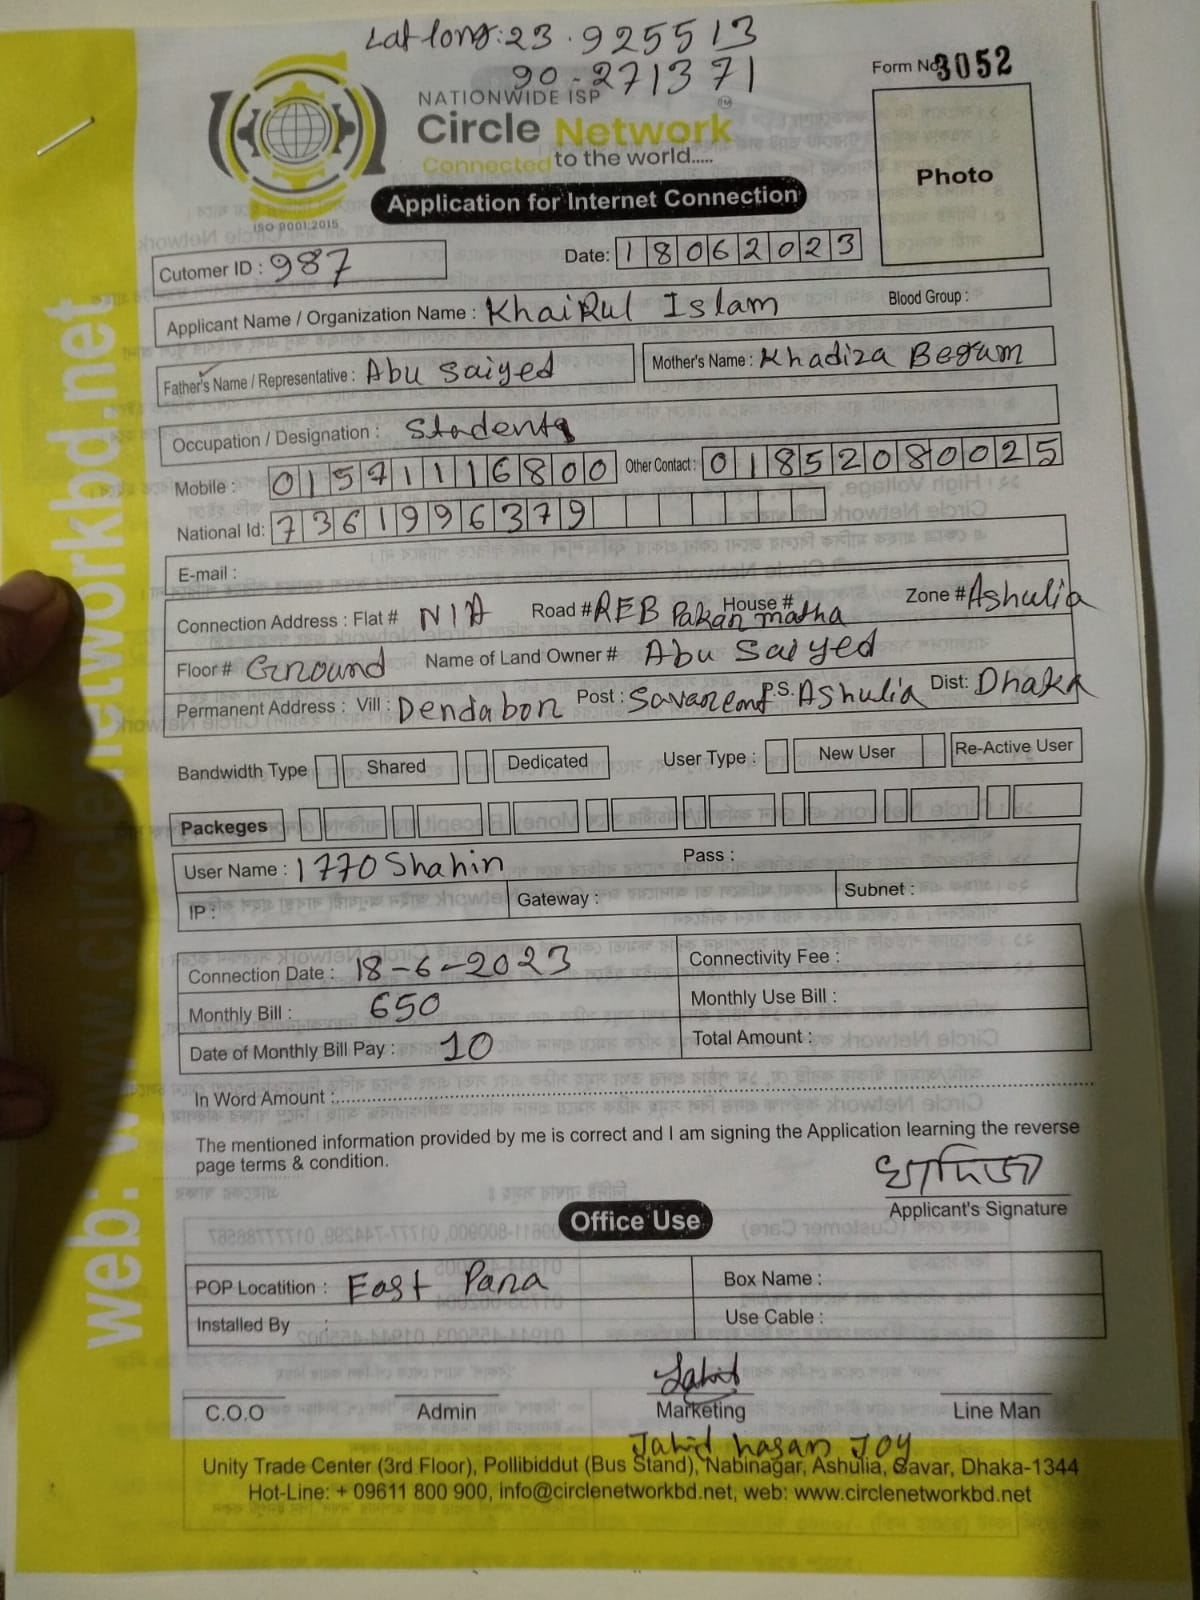 Lat long: 23.925513
90-271371
Form No 3052
NATIONWIDE ISP
Circle Network
TM
Connected to the world.....
Photo
Application for Internet Connection
ISO 9001:2015
Cutomer ID : 987
Date: 18062023
Applicant Name / Organization Name : Khairul Islam Blood Group :
Father's Name / Representative : Abu Saiyed Mother's Name : Khadiza Begum
Occupation / Designation : Students
Mobile : 01571116800 Other Contact : 01852080025
National Id: 7361996379
E-mail :
Connection Address : Flat # N/A Road # REB Pakan matha House # Zone # Ashulia
Floor # Ground Name of Land Owner # Abu Saiyed
Permanent Address : Vill : Dendabon Post : Savarcant P.S. Ashulia Dist: Dhaka
Bandwidth Type Shared Dedicated User Type : New User Re-Active User
Packeges
User Name : 1770Shahin Pass :
IP : Gateway : Subnet :
Connection Date : 18-6-2023 Connectivity Fee :
Monthly Bill : 650 Monthly Use Bill :
Date of Monthly Bill Pay : 10 Total Amount :
In Word Amount :
The mentioned information provided by me is correct and I am signing the Application learning the reverse
page terms & condition.
খাদিজা
Applicant's Signature
Office Use
POP Locatition : East Para Box Name :
Installed By : Use Cable :
Jahid
C.O.O Admin Marketing Line Man
Jahid hasan Joy
Unity Trade Center (3rd Floor), Pollibiddut (Bus Stand), Nabinagar, Ashulia, Savar, Dhaka-1344
Hot-Line: + 09611 800 900, info@circlenetworkbd.net, web: www.circlenetworkbd.net
web: www.circlenetworkbd.net